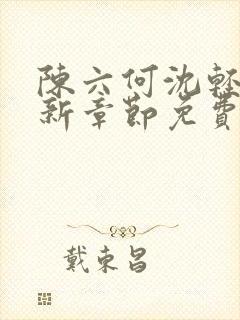 陳六何沈輕
新章節免費
戴東昌